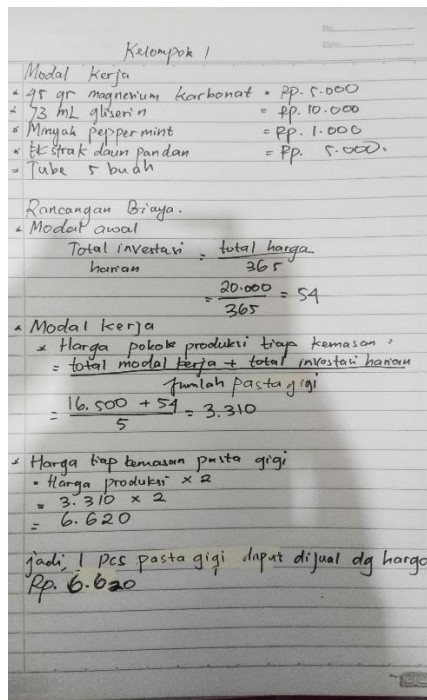 No.
Date:
Kelompok 1
Modal Kerja
* 45 gr magnesium karbonat = Rp. 5.000
* 73 mL gliserin = Rp. 10.000
* Minyak peppermint = Rp. 1.000
* Ekstrak daun pandan = Rp. 5.000.
= Tube 5 buah
Rancangan Biaya.
* Modal awal
Total investasi harian = total harga / 365
= 20.000 / 365 = 54
* Modal kerja
* Harga pokok produksi tiap kemasan :
= total modal kerja + total investasi harian / Jumlah pasta gigi
= 16.500 + 54 / 5 = 3.310
* Harga tiap kemasan pasta gigi
= Harga produksi × 2
= 3.310 × 2
= 6.620
jadi, 1 pcs pasta gigi dapat dijual dg harga
Rp. 6.620